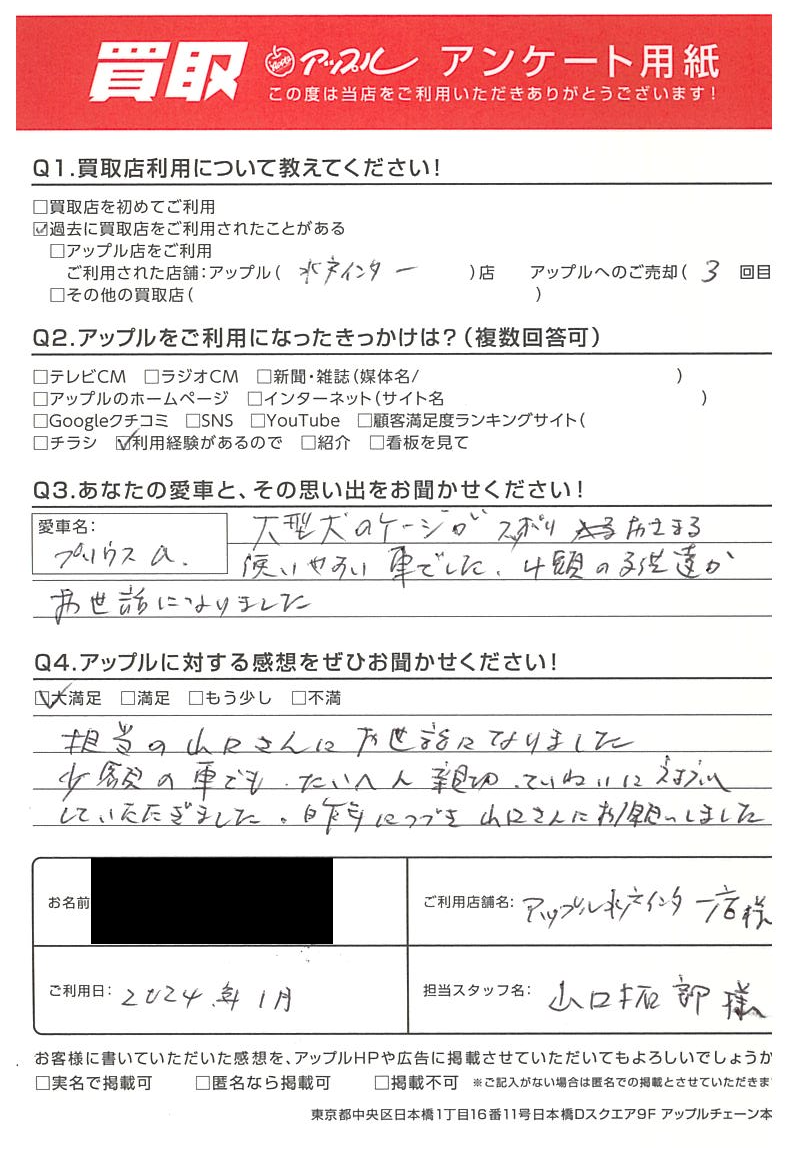 買取 アップル アンケート用紙
この度は当店をご利用いただきありがとうございます!
Q1.買取店利用について教えてください!
□買取店を初めてご利用
☑過去に買取店をご利用されたことがある
□アップル店をご利用
ご利用された店舗:アップル( 水戸インター )店 アップルへのご売却( 3 回目
□その他の買取店( )
Q2.アップルをご利用になったきっかけは?(複数回答可)
□テレビCM □ラジオCM □新聞・雑誌(媒体名/ )
□アップルのホームページ □インターネット(サイト名 )
□Googleクチコミ □SNS □YouTube □顧客満足度ランキングサイト(
□チラシ ☑利用経験があるので □紹介 □看板を見て
Q3.あなたの愛車と、その思い出をお聞かせください!
愛車名:
プリウスα.
大型犬のケージがスッポリ おさまる
使いやすい車でした、4頭の子供達が
お世話になりました
Q4.アップルに対する感想をぜひお聞かせください!
☑大満足 □満足 □もう少し □不満
担当の山口さんにお世話になりました
少額の車でも、たいへん親切、ていねいに対応
していただきました。昨年につづき山口さんにお願いしました
お名前
ご利用店舗名: アップル水戸インター店様
ご利用日: 2024年1月
担当スタッフ名: 山口拓郎様
お客様に書いていただいた感想を、アップルHPや広告に掲載させていただいてもよろしいでしょうか
□実名で掲載可 □匿名なら掲載可 □掲載不可 ※ご記入がない場合は匿名での掲載とさせていただきま
東京都中央区日本橋1丁目16番11号日本橋Dスクエア9F アップルチェーン本